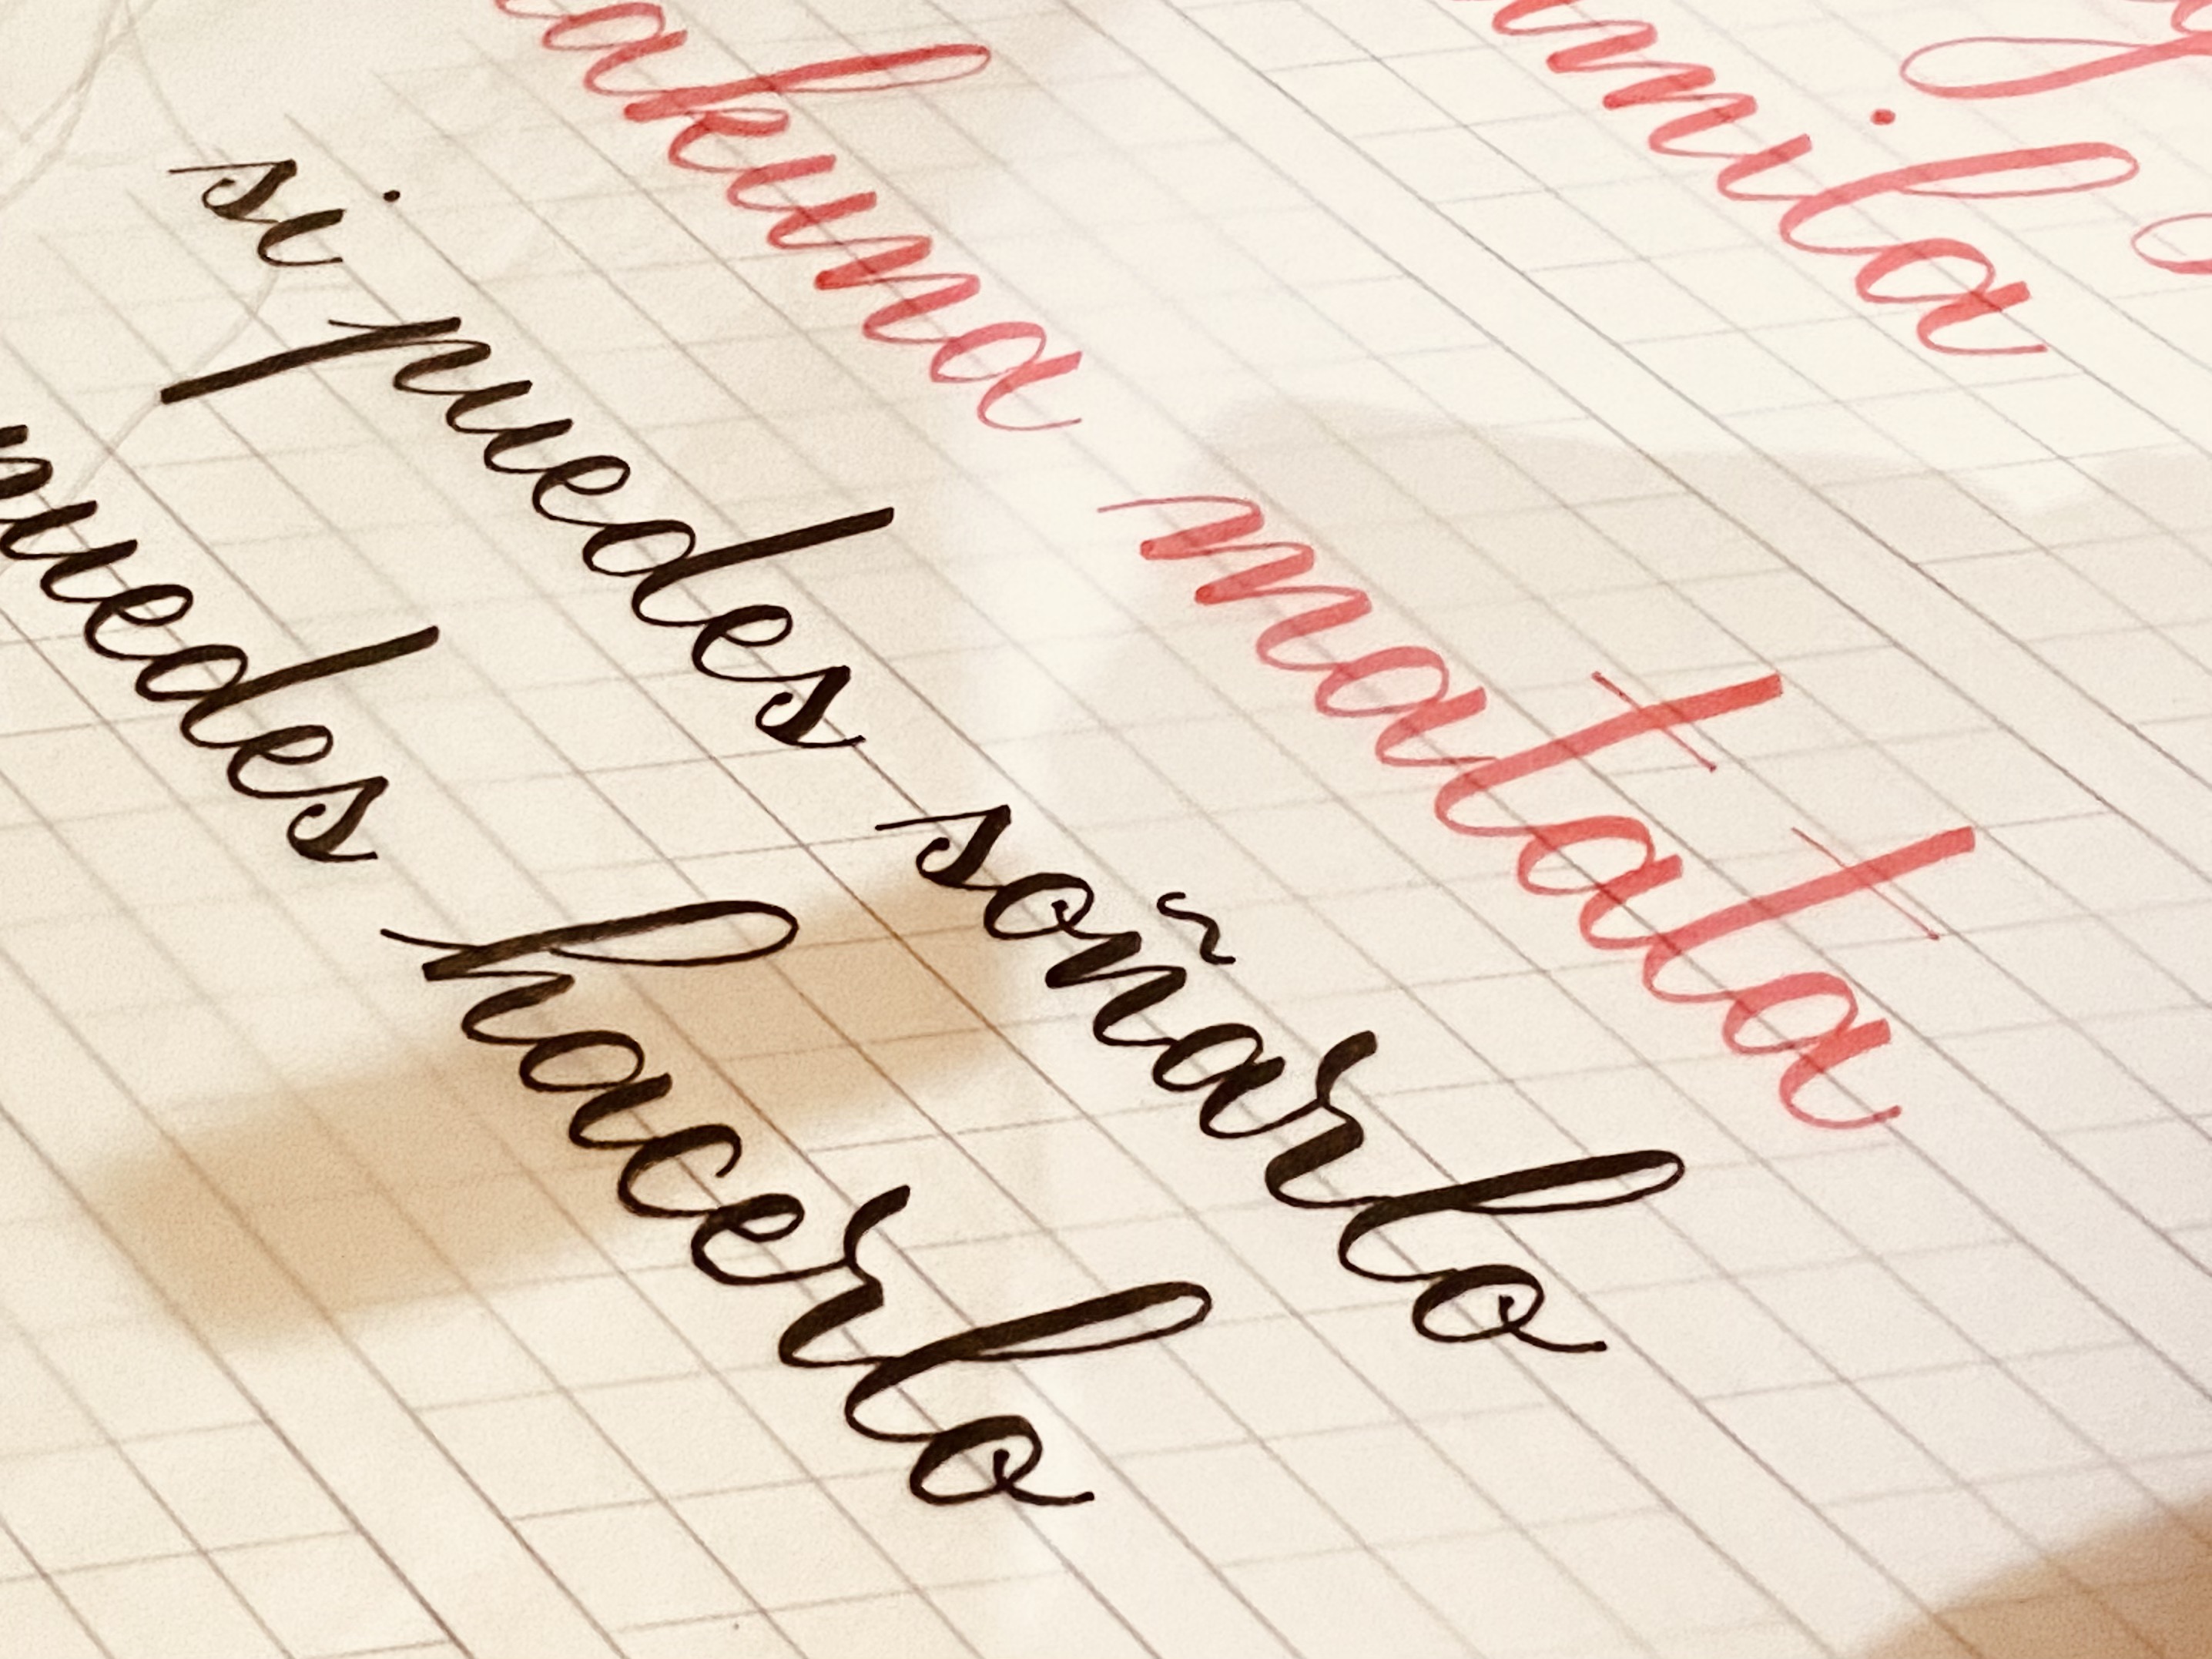 akuna matata
si puedes soñarlo
puedes hacerlo